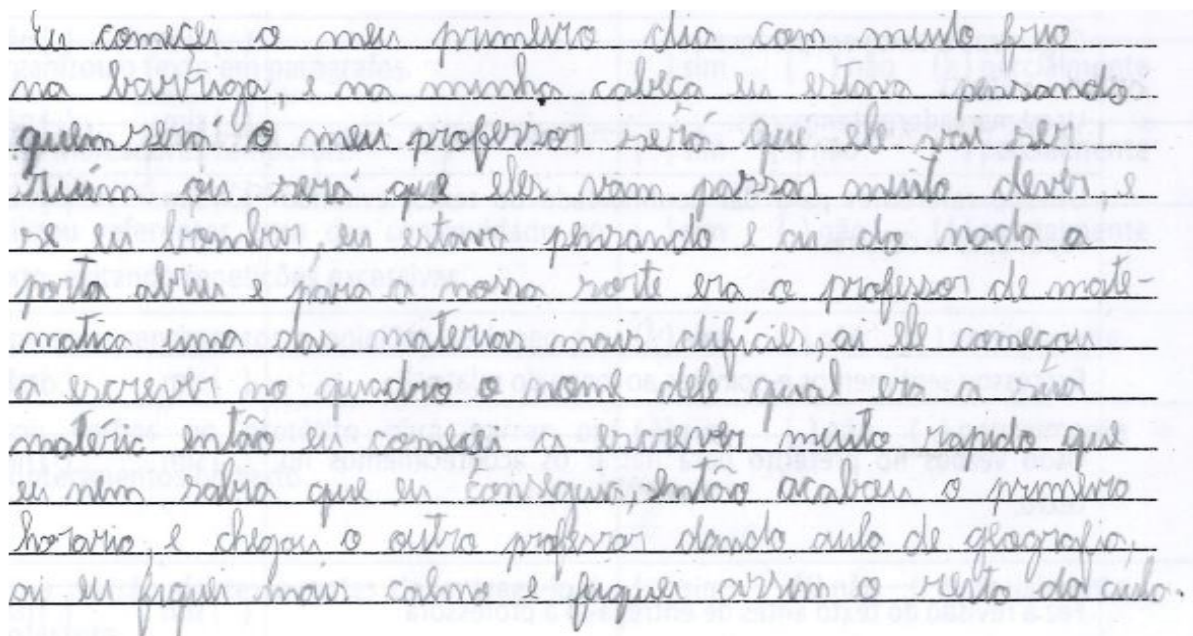 Eu começei o meu primeiro dia com muito frio
na barriga, e na minha cabeça eu estava pensando
quem será o meu professor será que ele vai ser
ruim ou será que eles vam passar muito dever e
se eu bombar, eu estava pensando e do nada a
porta abriu e para a nossa sorte era o professor de mate-
matica uma das materias mais difíceis, ai ele começou
a escrever no quadro o nome dele qual era a sua
matéria então eu começei a escrever muito rapido que
eu nem sabia que eu conseguia, então acabou o primeiro
horario, e chegou o outro professor dando aula de geografia,
ai eu fiquei mais calmo e fiquei assim o resto da aula.